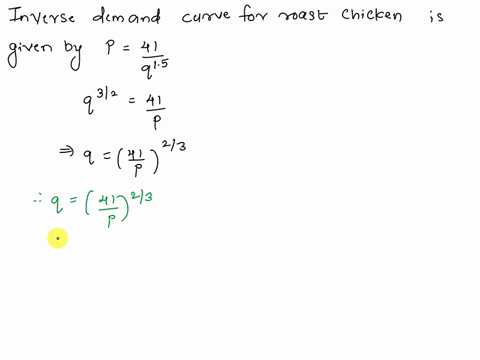 Inverse demand curve for roast chicken is
given by P = 41/q^1.5
q^3/2 = 41/P
⇒ q = (41/P)^2/3
∴ q = (41/P)^2/3